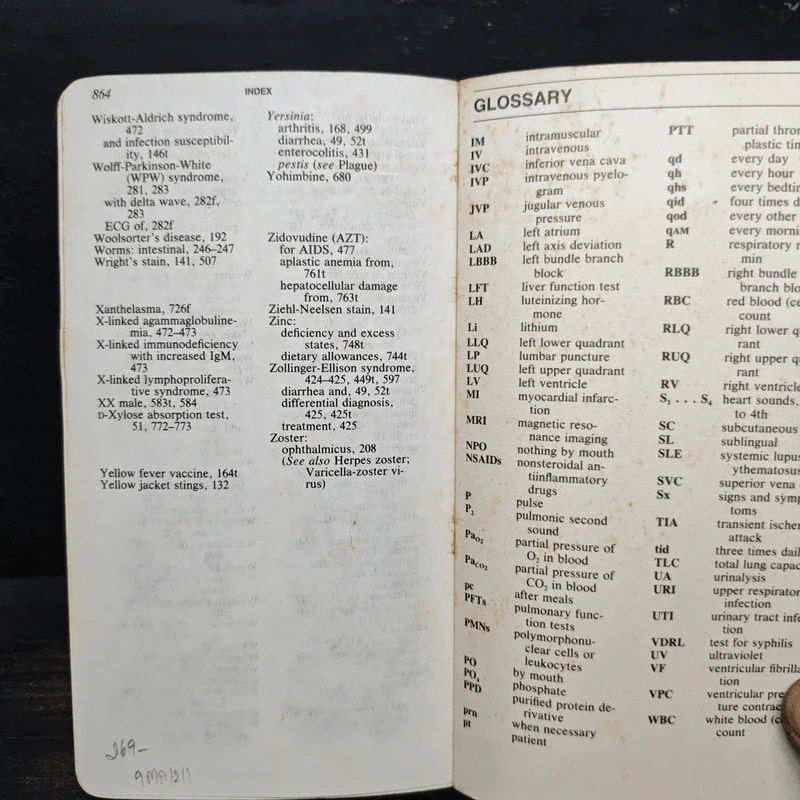 864
INDEX
Wiskott-Aldrich syndrome,
472
and infection susceptibil-
ity, 146t
Wolff-Parkinson-White
(WPW) syndrome,
281, 283
with delta wave, 282f,
283
ECG of, 282f
Woolsorter's disease, 192
Worms: intestinal, 246–247
Wright's stain, 141, 507
Xanthelasma, 726f
X-linked agammaglobuline-
mia, 472–473
X-linked immunodeficiency
with increased IgM,
473
X-linked lymphoprolifera-
tive syndrome, 473
XX male, 583t, 584
D-Xylose absorption test,
51, 772–773
Yellow fever vaccine, 164t
Yellow jacket stings, 132
Yersinia:
arthritis, 168, 499
diarrhea, 49, 52t
enterocolitis, 431
pestis (see Plague)
Yohimbine, 680
Zidovudine (AZT):
for AIDS, 477
aplastic anemia from,
761t
hepatocellular damage
from, 763t
Ziehl-Neelsen stain, 141
Zinc:
deficiency and excess
states, 748t
dietary allowances, 744t
Zollinger-Ellison syndrome,
424–425, 449t, 597
diarrhea and, 49, 52t
differential diagnosis,
425, 425t
treatment, 425
Zoster:
ophthalmicus, 208
(See also Herpes zoster;
Varicella-zoster vi-
rus)
269-
GLOSSARY
IM intramuscular
IV intravenous
IVC inferior vena cava
IVP intravenous pyelo-
gram
JVP jugular venous
pressure
LA left atrium
LAD left axis deviation
LBBB left bundle branch
block
LFT liver function test
LH luteinizing hor-
mone
Li lithium
LLQ left lower quadrant
LP lumbar puncture
LUQ left upper quadrant
LV left ventricle
MI myocardial infarc-
tion
MRI magnetic reso-
nance imaging
NPO nothing by mouth
NSAIDs nonsteroidal an-
tiinflammatory
drugs
P pulse
P₂ pulmonic second
sound
PaO₂ partial pressure of
O₂ in blood
PaCO₂ partial pressure of
CO₂ in blood
pc after meals
PFTs pulmonary func-
tion tests
PMNs polymorphonu-
clear cells or
leukocytes
PO by mouth
PO₄ phosphate
PPD purified protein de-
rivative
prn when necessary
pt patient
PTT partial thro
plastic ti
qd every day
qh every hour
qhs every bedti
qid four times d
qod every other
qAM every morni
R respiratory
min
RBBB right bundle
branch blo
RBC red blood (ce
count
RLQ right lower q
rant
RUQ right upper q
rant
RV right ventricle
S₁ . . . S₄ heart sounds,
to 4th
SC subcutaneous
SL sublingual
SLE systemic lupus
ythematosus
SVC superior vena
Sx signs and symp
toms
TIA transient ischer
attack
tid three times dail
TLC total lung capac
UA urinalysis
URI upper respirator
infection
UTI urinary tract infe
tion
VDRL test for syphilis
UV ultraviolet
VF ventricular fibrilla
tion
VPC ventricular pre
ture contrac
WBC white blood (c
count